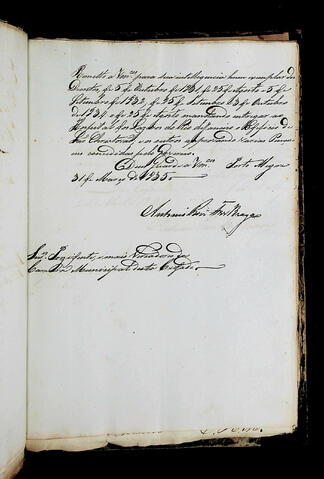 Remetto a Vm.ces para sua intelligencia hum exemplar dos
Decretos de 5 de Outubro de 1831, de 25 de Agosto e 5 de
Setembro de 1832, de 25 de Setembro e 3 de Outubro
de 1834 e de 25 de mandando entregar ao
Hospital dos Lazaros do Rio de Janeiro o Edificio de
São Christovão, e os outros approvando varias Pensões
concedidas pelo Governo.
Deos Guarde a Vm.ces Porto Alegre
31 de Março de 1835.
Antonio Braga
Snr.s Prezidente, e mais Vereadores da
Camara Municipal desta Cidade.